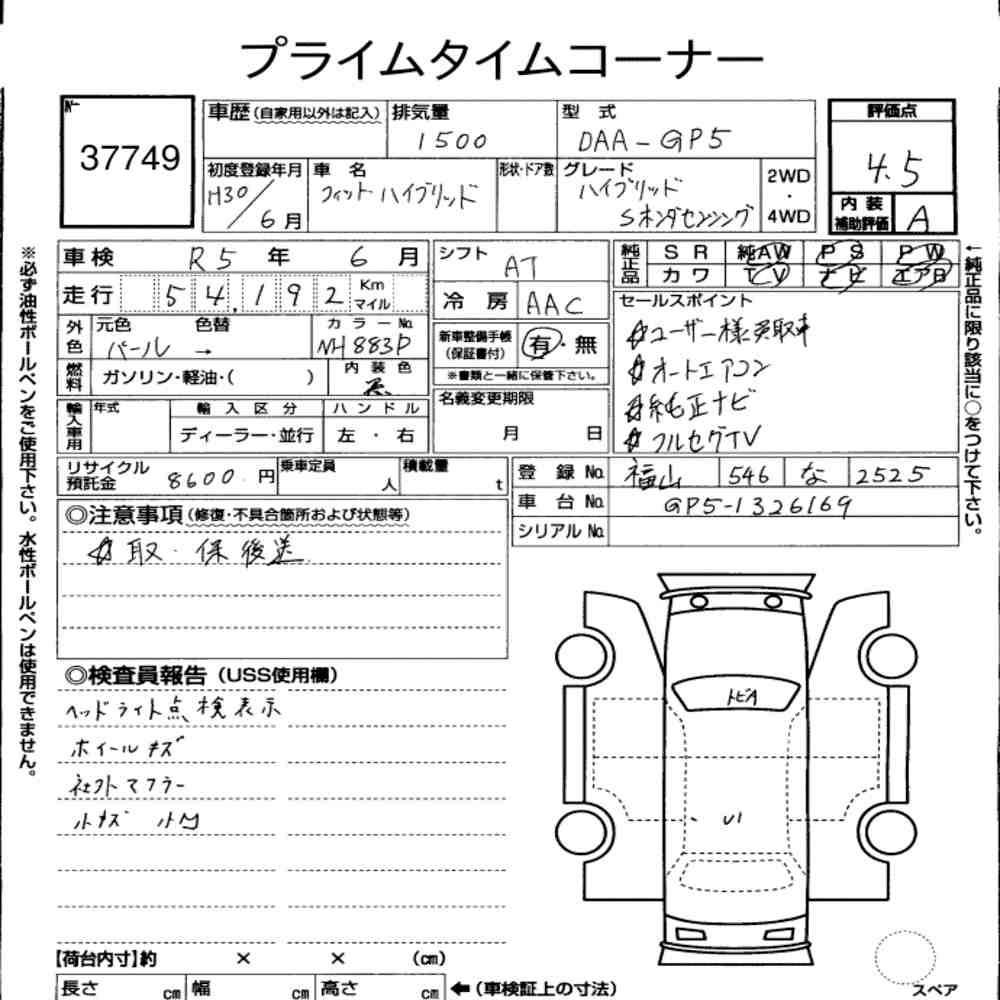 プライムタイムコーナー
No. 37749
車歴(自家用以外は記入) 排気量 1500 型式 DAA-GP5
評価点 4.5
初度登録年月 H30/6月 車名 フィットハイブリッド 形状・ドア数 グレード ハイブリッド Sホンダセンシング 2WD・4WD
内装補助評価 A
車検 R5年6月 シフト AT
純正品 SR 純AW PS PW
カワ TV ナビ エアB
走行 54,192 Km マイル 冷房 AAC
セールスポイント
外色 元色 パール 色替 → カラーNo. NH883P
新車整備手帳(保証書付) 有・無
※書類と一緒に保管下さい。
☆ユーザー様買取車
☆オートエアコン
☆純正ナビ
☆フルセグTV
燃料 ガソリン・軽油・( ) 内装色 黒
名義変更期限 月 日
輸入車用 年式 輸入区分 ハンドル
ディーラー・並行 左・右
リサイクル預託金 8600円 乗車定員 人 積載量 t
登録No. 福山 546 な 2525
車台No. GP5-1326169
シリアルNo.
◎注意事項(修復・不具合箇所および状態等)
☆取・保後送
◎検査員報告(USS使用欄)
ヘッドライト点検表示
ホイールキズ
社外マフラー
小キズ 小凹
トビA
U1
【荷台内寸】約 × × (cm)
長さ cm 幅 cm 高さ cm ←(車検証上の寸法)
スペア
※必ず油性ボールペンをご使用下さい。水性ボールペンは使用できません。
←純正品に限り該当に○をつけて下さい。